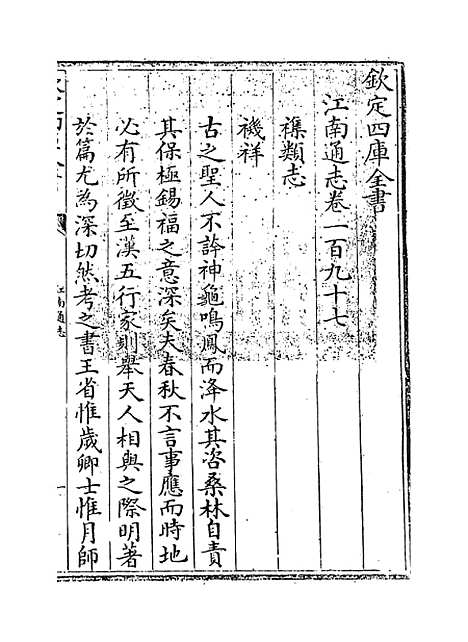 欽定四庫全書
江南通志卷一百九十七
襍類志
禨祥
古之聖人不誇神龜鳴鳳而洚水其咨桑林自責
其保極錫福之意深矣夫春秋不言事應而時地
必有所徵至漢五行家則舉天人相與之際明著
於篇尤為深切然考之書王省惟歲卿士惟月師
江南通志
一